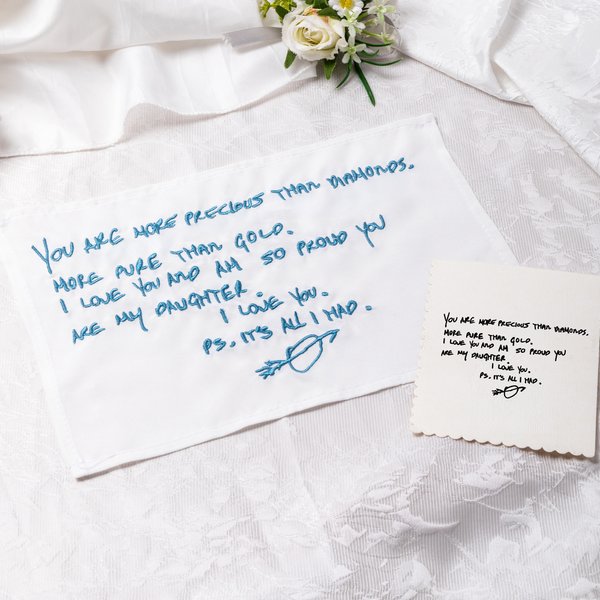 YOU ARE MORE PRECIOUS THAN DIAMONDS.
MORE PURE THAN GOLD.
I LOVE YOU AND AM SO PROUD YOU
ARE MY DAUGHTER.
I LOVE YOU.
PS. IT'S ALL I HAD.
YOU ARE MORE PRECIOUS THAN DIAMONDS.
MORE PURE THAN GOLD.
I LOVE YOU AND AM SO PROUD YOU
ARE MY DAUGHTER.
I LOVE YOU.
PS. IT'S ALL I HAD.